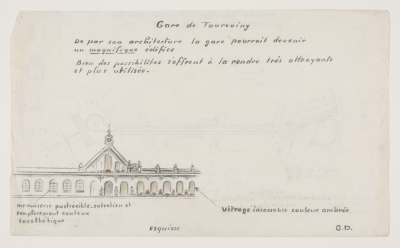 Gare de Tourcoing
De par son architecture la gare pourrait devenir
un magnifique édifice
Bien des possibilités s'offrent à la rendre très attrayante
et plus utilisée.
menuiserie putrescible, entretien et
remplacement couteux
inesthétique
Vitrage incassable couleur ambrée
esquisse
G.D.